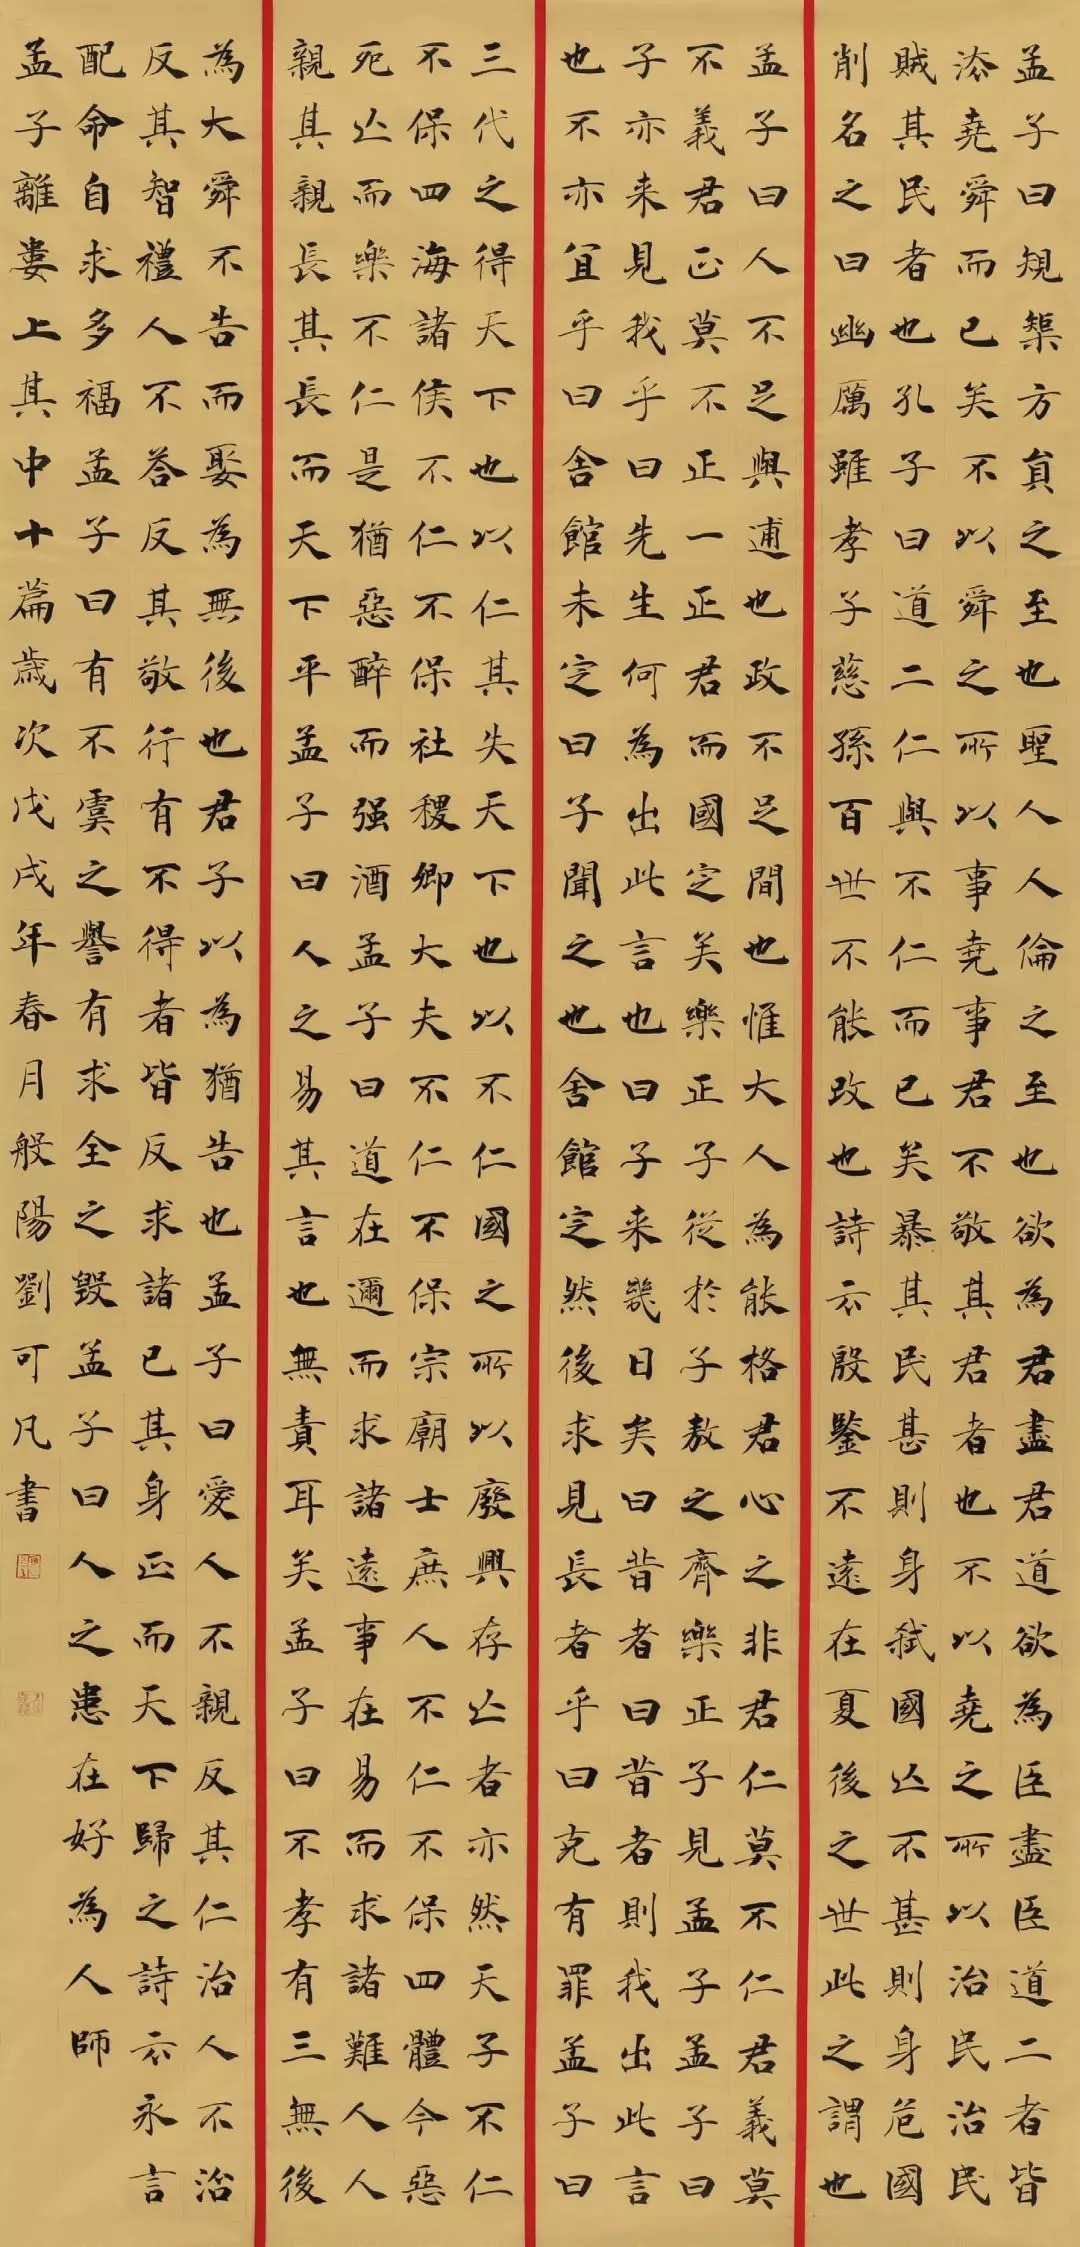 孟子曰規榘方員之至也聖人人倫之至也欲為君盡君道欲為臣盡臣道二者皆
法堯舜而已矣不以舜之所以事堯事君不敬其君者也不以堯之所以治民治民
賊其民者也孔子曰道二仁與不仁而已矣暴其民甚則身弒國亡不甚則身危國
削名之曰幽厲雖孝子慈孫百世不能改也詩云殷鑒不遠在夏後之世此之謂也
孟子曰人不足與適也政不足間也惟大人為能格君心之非君仁莫不仁君義莫
不義君正莫不正一正君而國定矣樂正子從於子敖之齊樂正子見孟子孟子曰
子亦来見我乎曰先生何為出此言也曰子来幾日矣曰昔者曰昔者則我出此言
也不亦宜乎曰舍館未定曰子聞之也舍館定然後求見長者乎曰克有罪孟子曰
三代之得天下也以仁其失天下也以不仁國之所以廢興存亡者亦然天子不仁
不保四海諸侯不仁不保社稷卿大夫不仁不保宗廟士庶人不仁不保四體今惡
死亡而樂不仁是猶惡醉而强酒孟子曰道在邇而求諸遠事在易而求諸難人人
親其親長其長而天下平孟子曰人之易其言也無責耳矣孟子曰不孝有三無後
為大舜不告而娶為無後也君子以為猶告也孟子曰愛人不親反其仁治人不治
反其智禮人不答反其敬行有不得者皆反求諸己其身正而天下歸之詩云永言
配命自求多福孟子曰有不虞之譽有求全之毀孟子曰人之患在好為人師
孟子離婁上其中十篇歲次戊戌年春月般陽劉可凡書